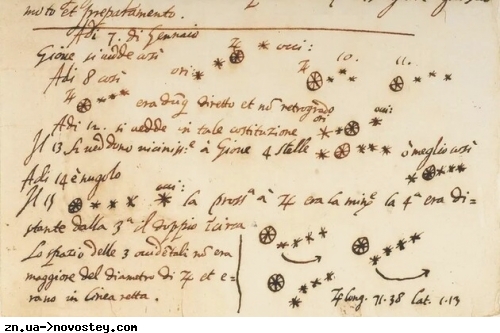 moto et preparamento.
Adi 7. di Gennaio
Gione si vedde così ♃ occi:
Adi 8 così ori: 10. 11.
♃ era dunq diretto et nō retrogrado
Adi 12. si vedde in tale costituzione ori occi:
Il 13 si veddono vicinissᵉ à Giove 4 stelle ò meglio così
Adi 14 è nugolo
Il 15 occi: la prossᵃ à ♃ era la minᵉ la 4ᵃ era di=
stante dalla 3ᵃ il doppio circa
Lo spazio delle 3 occidētali nō era
maggiore del diametro di ♃ et e=
rano in linea retta.
♃ long. 71.38 Lat. 1.13
zn.ua->novostey.com